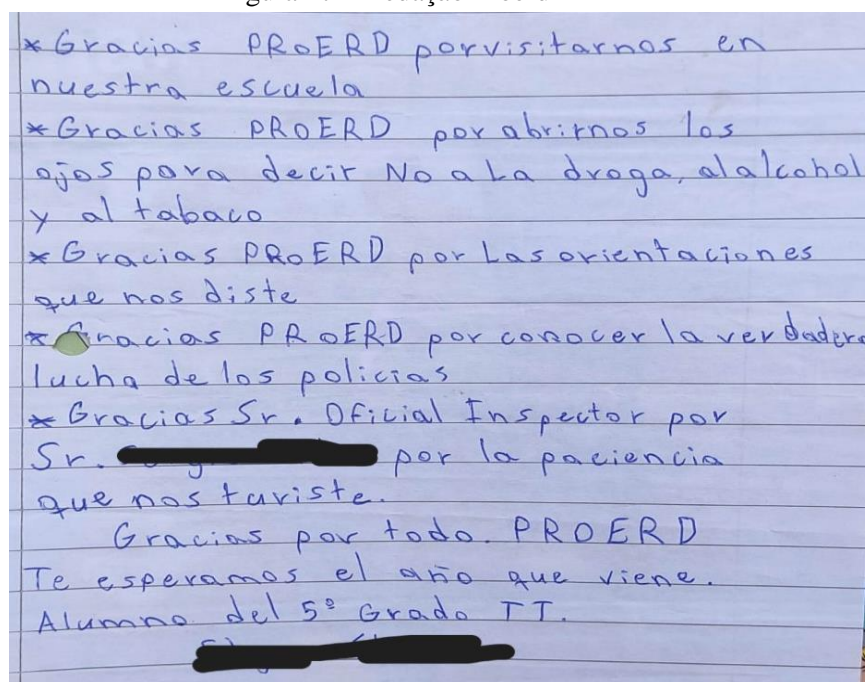 * Gracias PROERD por visitarnos en
nuestra escuela
* Gracias PROERD por abrirnos los
ojos para decir No a La droga, al alcohol
y al tabaco
* Gracias PROERD por Las orientaciones
que nos diste
* Gracias PROERD por conocer la verdadera
lucha de los policias
* Gracias Sr. Oficial Inspector por
Sr. por la paciencia
que nos tuviste.
Gracias por todo. PROERD
Te esperamos el año que viene.
Alumno del 5º Grado TT.